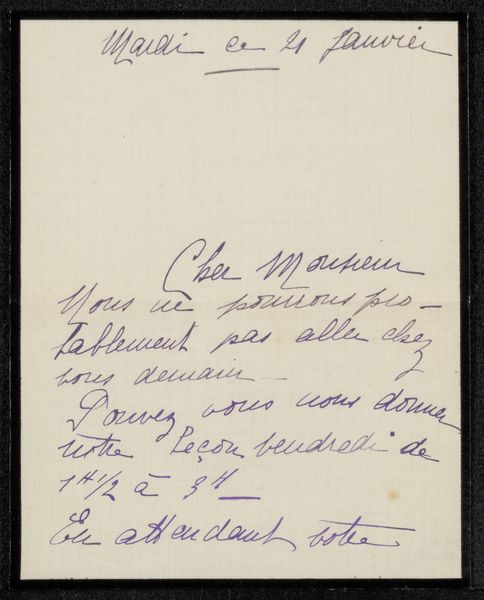 Mardi ce 21 Janvier
Cher Monsieur
Nous ne pourrons pro-
bablement pas aller chez
vous demain -
Pouvez vous nous donner
notre leçon vendredi de
1H1/2 à 3H
En attendant votre